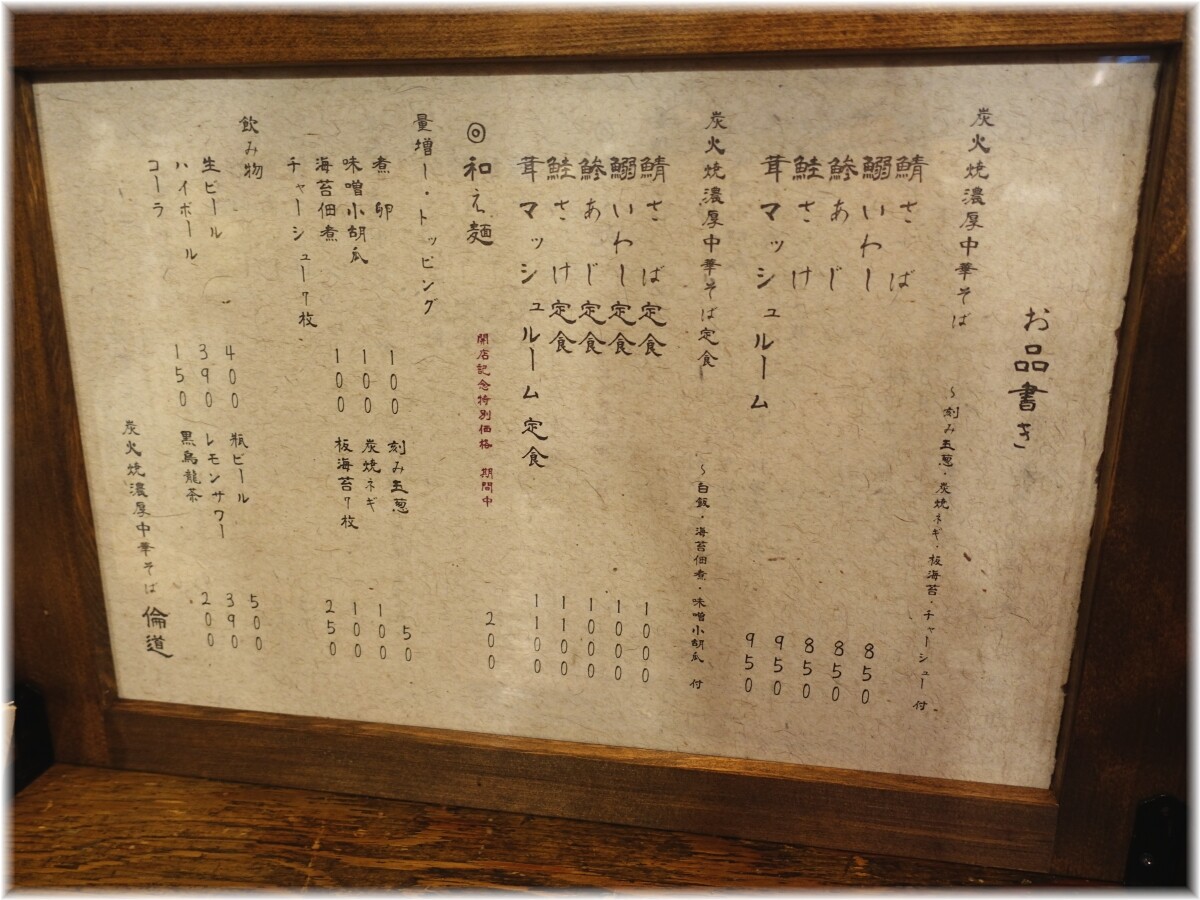 お品書き
炭火焼濃厚中華そば　〜刻み玉葱・炭焼ネギ・板海苔・チャーシュー付
鯖さば　850
鰯いわし　850
鯵あじ　850
鮭さけ　950
茸マッシュルーム　950
炭火焼濃厚中華そば定食　〜白飯・海苔佃煮・味噌小胡瓜　付
鯖さば定食　1000
鰯いわし定食　1000
鯵あじ定食　1000
鮭さけ定食　1100
茸マッシュルーム定食　1100
◎和え麺　開店記念特別価格　期間中　200
量増し・トッピング
煮卵　100　刻み玉葱　50
味噌小胡瓜　100　炭焼ネギ　100
海苔佃煮　100　板海苔7枚　100
チャーシュー7枚　250
飲み物
生ビール　400　瓶ビール　500
ハイボール　390　レモンサワー　390
コーラ　150　黒烏龍茶　200
炭火焼濃厚中華そば　倫道